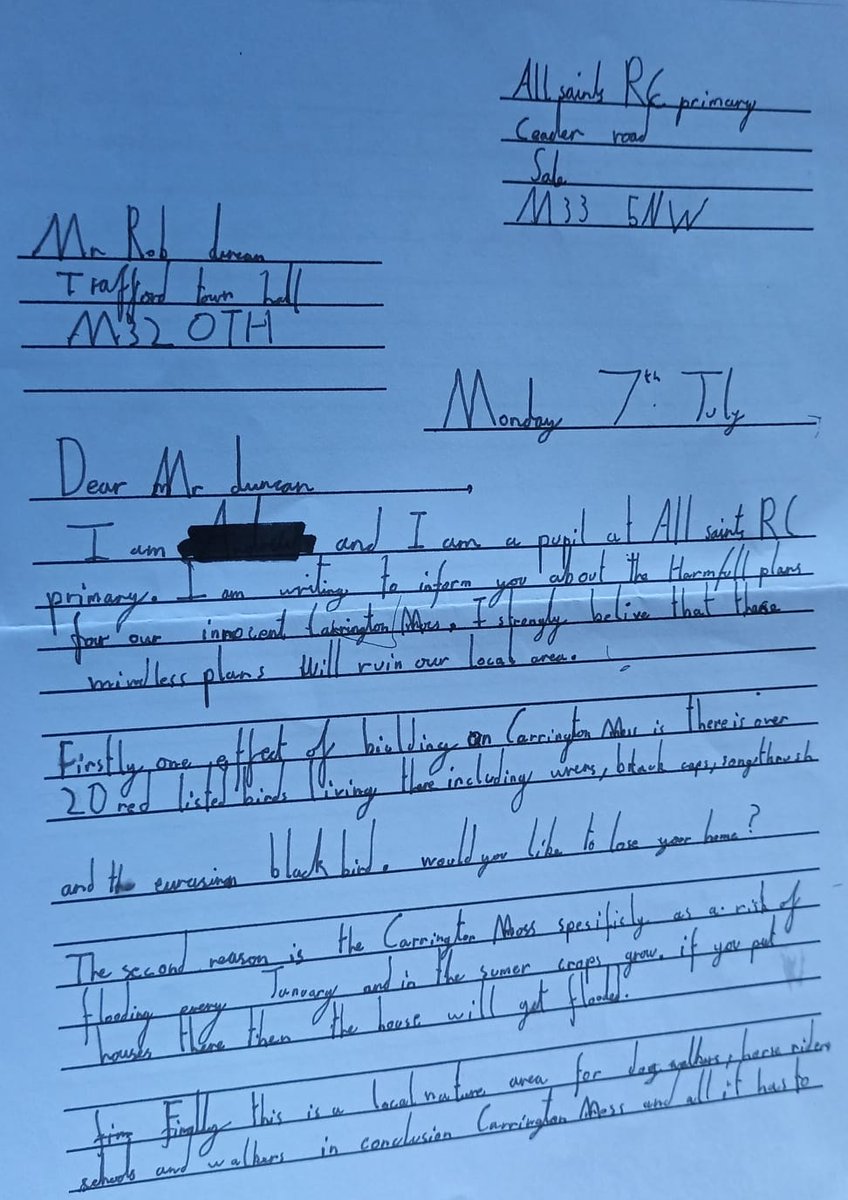 All saints RC primary
Ceader road
Sale
M33 5NW
Mr Rob duncan
Trafford town hall
M32 0TH
Monday 7th. July
Dear Mr duncan
I am and I am a pupil at All saints RC
primary. I am writing to inform you about the Harmfull plans
four our innocent Carrington Moss. I strongly belive that these
mindless plans will ruin our local area.
Firstly one effect of biulding on Carrington Moss is there is over
20 red listed birds living there including wrens, black caps, songthrush
and the eurasian black bird. would you like to lose your home?
The second reason is the Carrington Moss spesificly as a risk of
flooding every January and in the sumer crops grow. if you put
houses there then the house will get flooded.
Finally this is a local nature area for dog walkers, horse riders
schools and walkers in conclusion Carrington Moss and all it has to